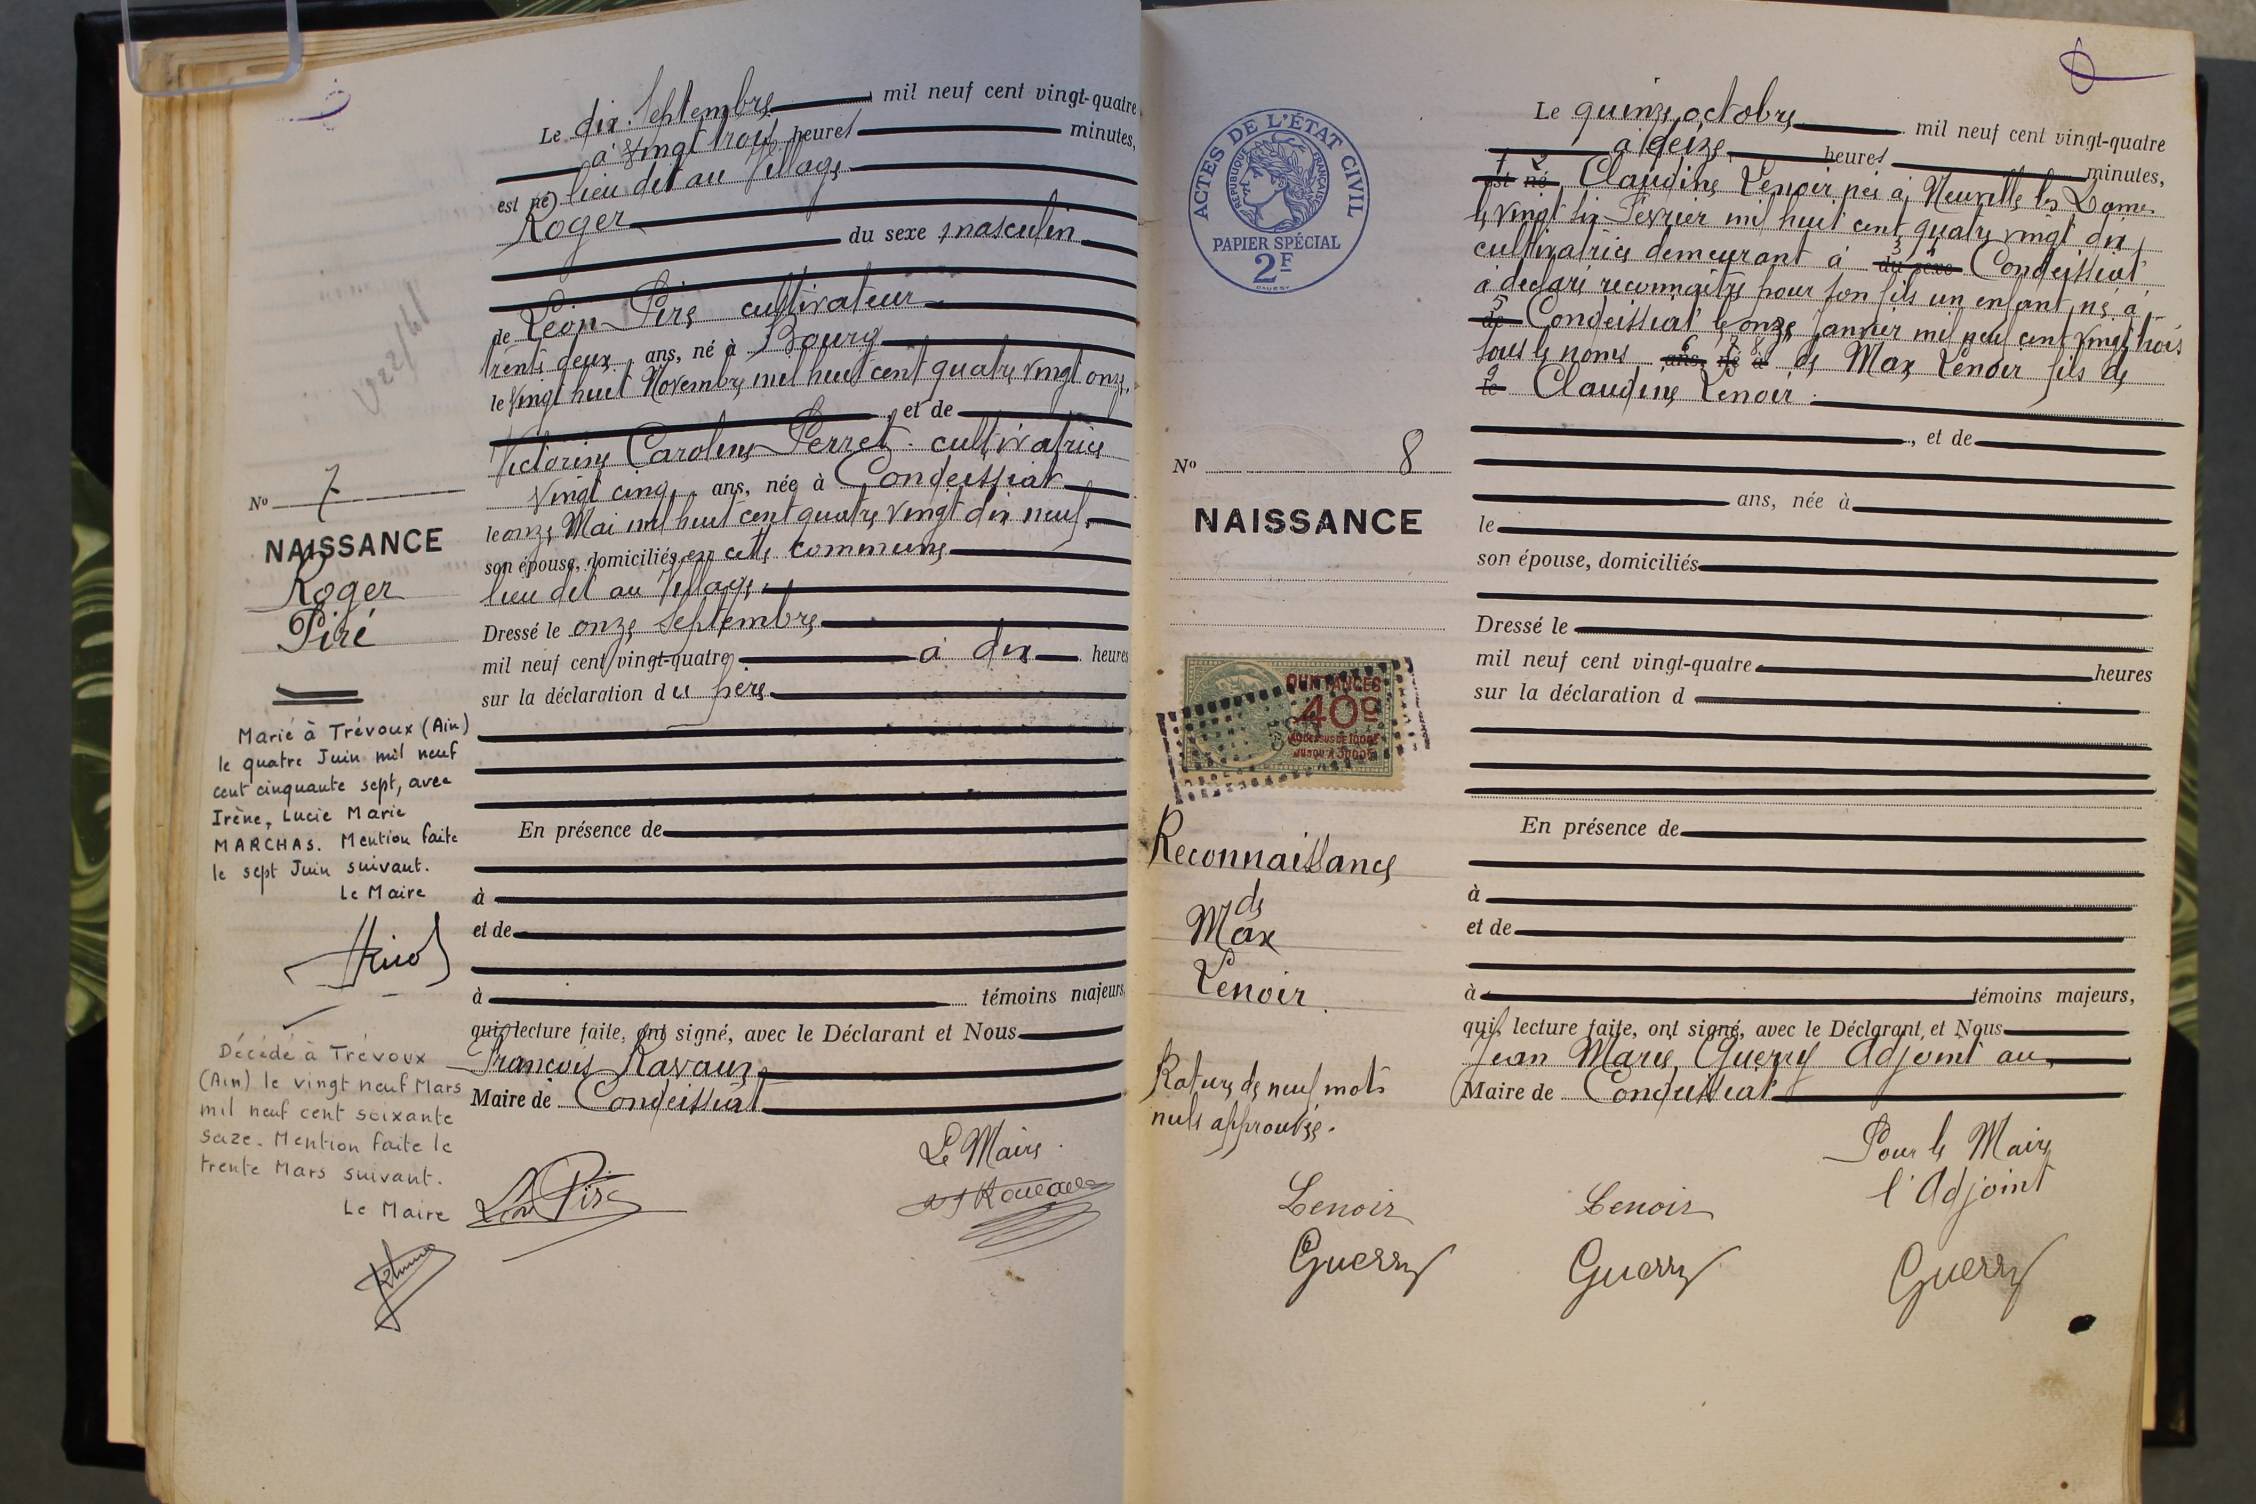 Le dix Septembre mil neuf cent vingt-quatre
à vingt trois heures minutes,
est né lieu dit au Village
Roger
du sexe masculin
de Léon Piré cultivateur
trente deux ans, né à Bourg
le vingt huit Novembre mil huit cent quatre vingt onze,
et de
Victorine Caroline Perret cultivatrice
vingt cinq ans, née à Condeissiat
le onze Mai mil huit cent quatre vingt dix neuf,
son épouse, domiciliés en cette commune
lieu dit au Village
Dressé le onze Septembre
mil neuf cent vingt-quatre à dix heures
sur la déclaration du père
En présence de
à
et de
à témoins majeurs,
qui, lecture faite, ont signé, avec le Déclarant et Nous
François Ravaux
Maire de Condeissiat
Le Maire
Léon Piré
Nº 7
NAISSANCE
Roger
Piré
Marié à Trévoux (Ain)
le quatre Juin mil neuf
cent cinquante sept, avec
Irène, Lucie Marie
MARCHAS. Mention faite
le sept Juin suivant.
Le Maire
Décédé à Trévoux
(Ain) le vingt neuf Mars
mil neuf cent soixante
seize. Mention faite le
trente Mars suivant.
Le Maire
ACTES DE L'ÉTAT CIVIL
RÉPUBLIQUE FRANÇAISE
PAPIER SPÉCIAL
2F
Le quinze octobre mil neuf cent vingt-quatre
à seize heures minutes,
1 2
est né Claudine Lenoir née à Neuville les Dames
le vingt six Février mil huit cent quatre vingt dix,
cultivatrice demeurant à du sexe Condeissiat
3 4
a déclaré reconnaître pour son fils un enfant né à
5
de Condeissiat le onze janvier mil neuf cent vingt trois
sous le noms ans, né à de Max Lenoir fils de
6 7 8
9
le Claudine Lenoir.
, et de
ans, née à
le
son épouse, domiciliés
Dressé le
mil neuf cent vingt-quatre heures
sur la déclaration d
En présence de
à
et de
à témoins majeurs,
qui, lecture faite, ont signé, avec le Déclarant et Nous
Jean Marie Guerry Adjoint au
Maire de Condeissiat
Nº 8
NAISSANCE
QUITTANCES
40c
Reconnaissance
de
Max
Lenoir
Rature de neuf mots
nuls approuvée.
Pour le Maire
l'Adjoint
Lenoir Lenoir
Guerry Guerry Guerry